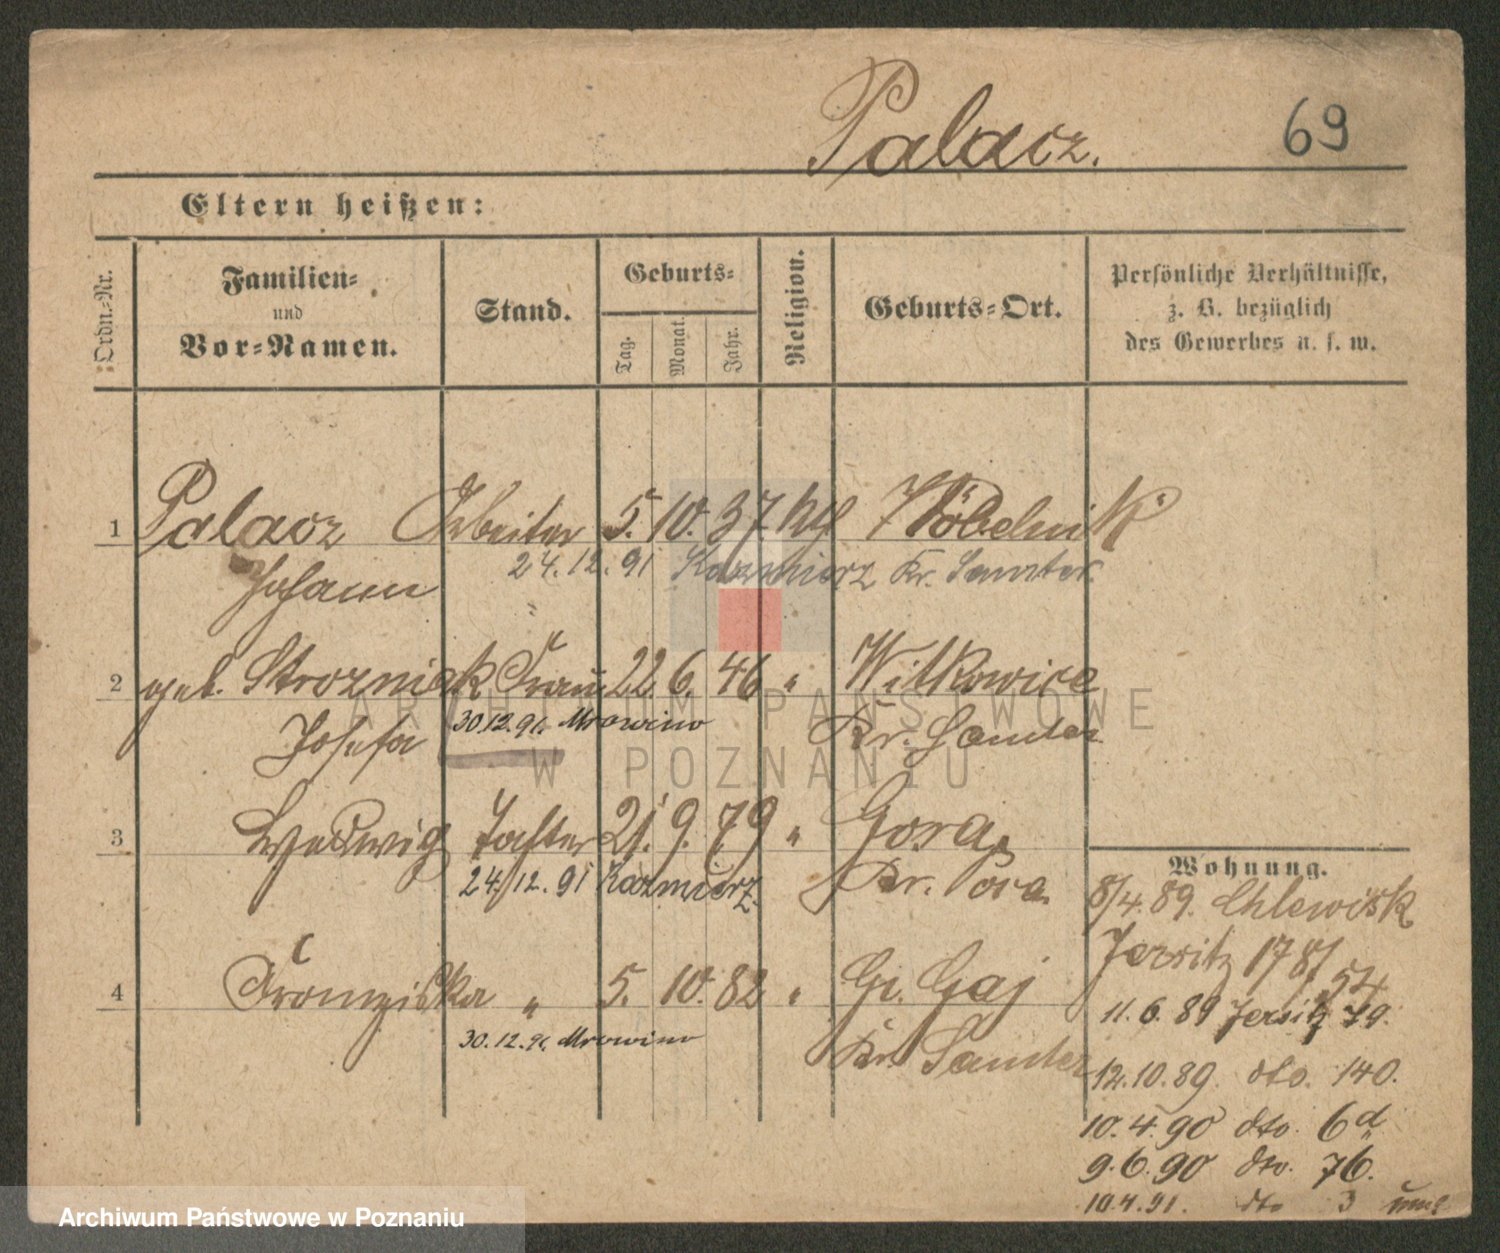 Palacz.
69
Eltern heißen:
Ordn.-Nr.
Familien-
und
Vor-Namen.
Stand.
Geburts-
Tag.
Monat.
Jahr.
Religion.
Geburts-Ort.
Persönliche Verhältnisse,
z. B. bezüglich
des Gewerbes u. s. w.
1 Palacz Arbeiter 5. 10. 37. kth
Johann 24.12.91 Kazmierz Kr. Samter.
2 geb. Strozniak Frau 22 6. 46 " Witkowice
Josefa 30.12.91. Mrowino Kr. Samter
3 Hedwig Tochter 21. 9. 79 " Gora
24.12.91 Kazmierz
4 Franziska " 5. 10. 82 " Gr. Gaj
30.12.91. Mrowino Kr. Samter
Wohnung.
8/4.89. Chlewisk
Jersitz 178/54
11.6.89 Jersitz 79.
12.10.89. dto. 140.
10.4.90 dto. 6d
9.6.90 dto. 76.
10.4.91. dto 3
ARCHIWUM PAŃSTWOWE
W POZNANIU
Archiwum Państwowe w Poznaniu